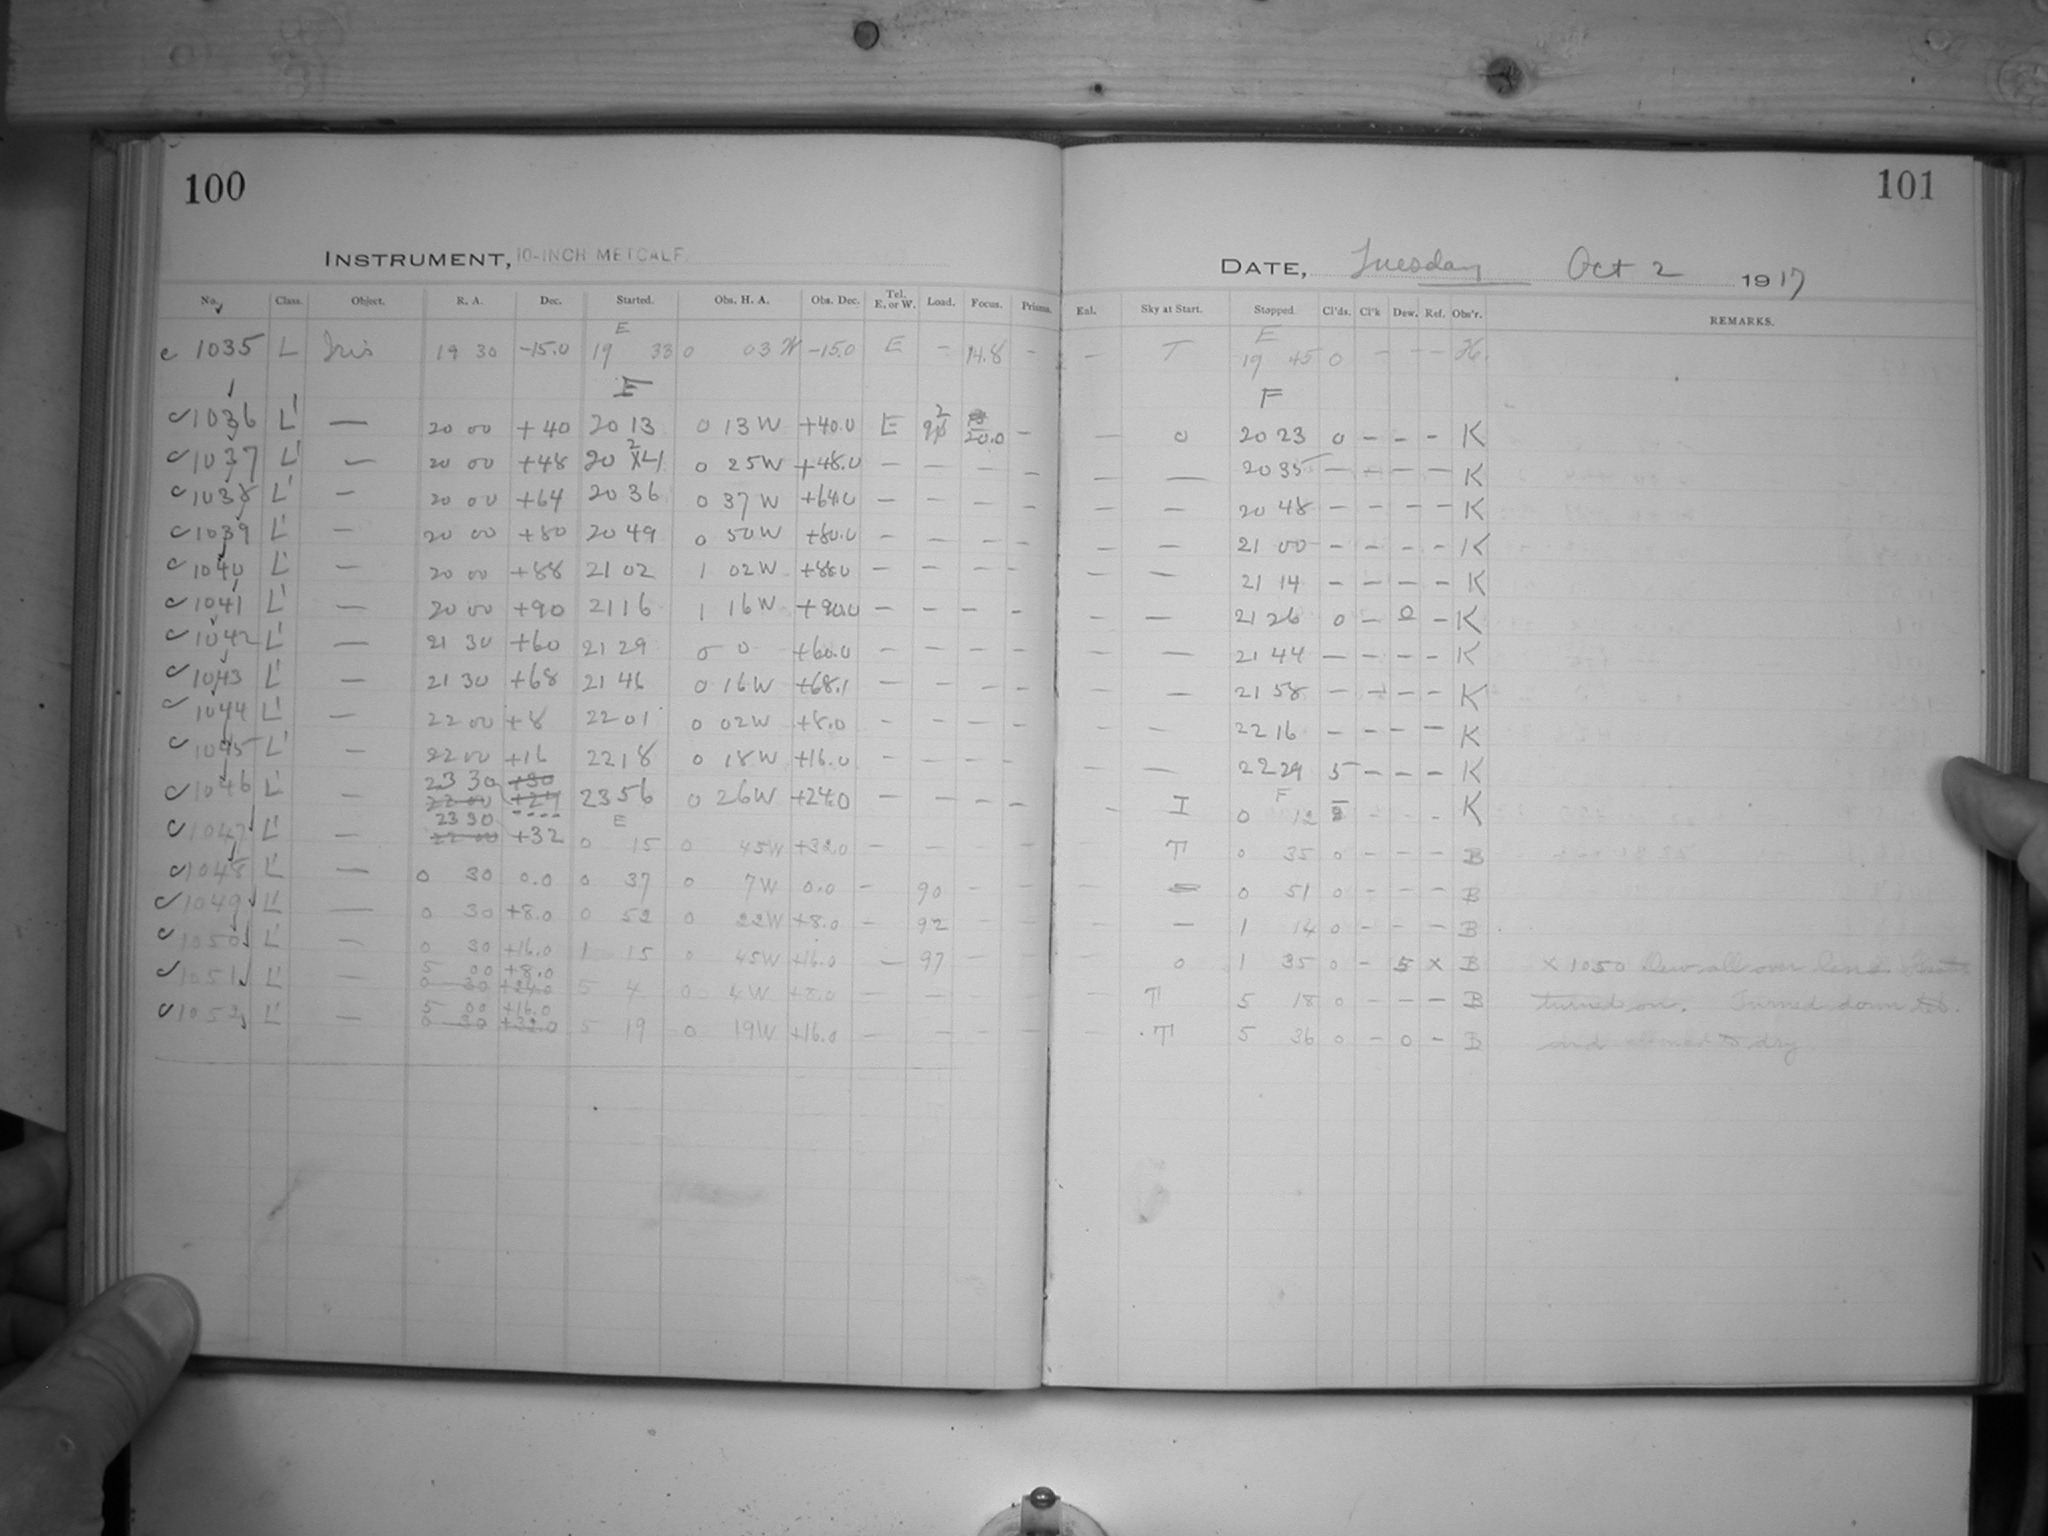 100
101
INSTRUMENT, 10-INCH METCALF
DATE, Tuesday Oct 2 1917
No. Class. Object. R. A. Dec. Started. Obs. H. A. Obs. Dec. Tel. E. or W. Load. Focus. Prisms. Eal. Sky at Start. Stopped Cl'ds. Cl'k Dew. Ref. Obs'r. REMARKS.
E E
c 1035 L Iris 19 30 -15.0 19 33 0 03 W -15.0 E - 14.8 - - T 19 45 0 - - - H.
E F
c 1036 L' — 20 00 +40 20 13 0 13 W +40.0 E 2 20.0 - — 0 20 23 0 - - - K
c 1037 L' — 20 00 +48 20 24 0 25 W +48.0 - - - - — — 20 35 - - - - K
c 1038 L' — 20 00 +64 20 36 0 37 W +64.0 - - - - - - 20 48 - - - - K
c 1039 L' — 20 00 +80 20 49 0 50 W +80.0 - - - - - - 21 00 - - - - K
c 1040 L' — 20 00 +88 21 02 1 02 W +88.0 - - - - - - 21 14 - - - - K
c 1041 L' — 20 00 +90 21 16 1 16 W +90.0 - - - - - - 21 26 0 - 0 - K
c 1042 L' — 21 30 +60 21 29 0 0 +60.0 - - - - - - 21 44 - - - - K
c 1043 L' — 21 30 +68 21 46 0 16 W +68.1 - - - - - - 21 58 - - - - K
c 1044 L' — 22 00 +8 22 01 0 02 W +8.0 - - - - - - 22 16 - - - - K
c 1045 L' — 22 00 +16 22 18 0 18 W +16.0 - - - - - — 22 29 5 - - - K
23 30 +30
c 1046 L' — 22 00 +24 23 56 0 26 W +24.0 - - - - - I 0 12 - - - K
F
23 30 E
c 1047 L' — 22 00 +32 0 15 0 45 W +32.0 - - - - - T 0 35 0 - - - B
c 1048 L' — 0 30 0.0 0 37 0 7 W 0.0 - 90 - - - - 0 51 0 - - - B
c 1049 L' — 0 30 +8.0 0 52 0 22 W +8.0 - 92 - - - - 1 14 0 - - - B
c 1050 L' — 0 30 +16.0 1 15 0 45 W +16.0 - 97 - - 0 1 35 0 - 5 x B x 1050 Dew all over lens.
5 00 +8.0
c 1051 L' — 0 30 +24.0 5 4 0 4 W +8.0 - - - - - T 5 18 0 - - - B turned on. Turned down
5 00 +16.0
c 1052 L' — 0 30 +32.0 5 19 0 19 W +16.0 - - - - - T 5 36 0 - 0 - B and to dry